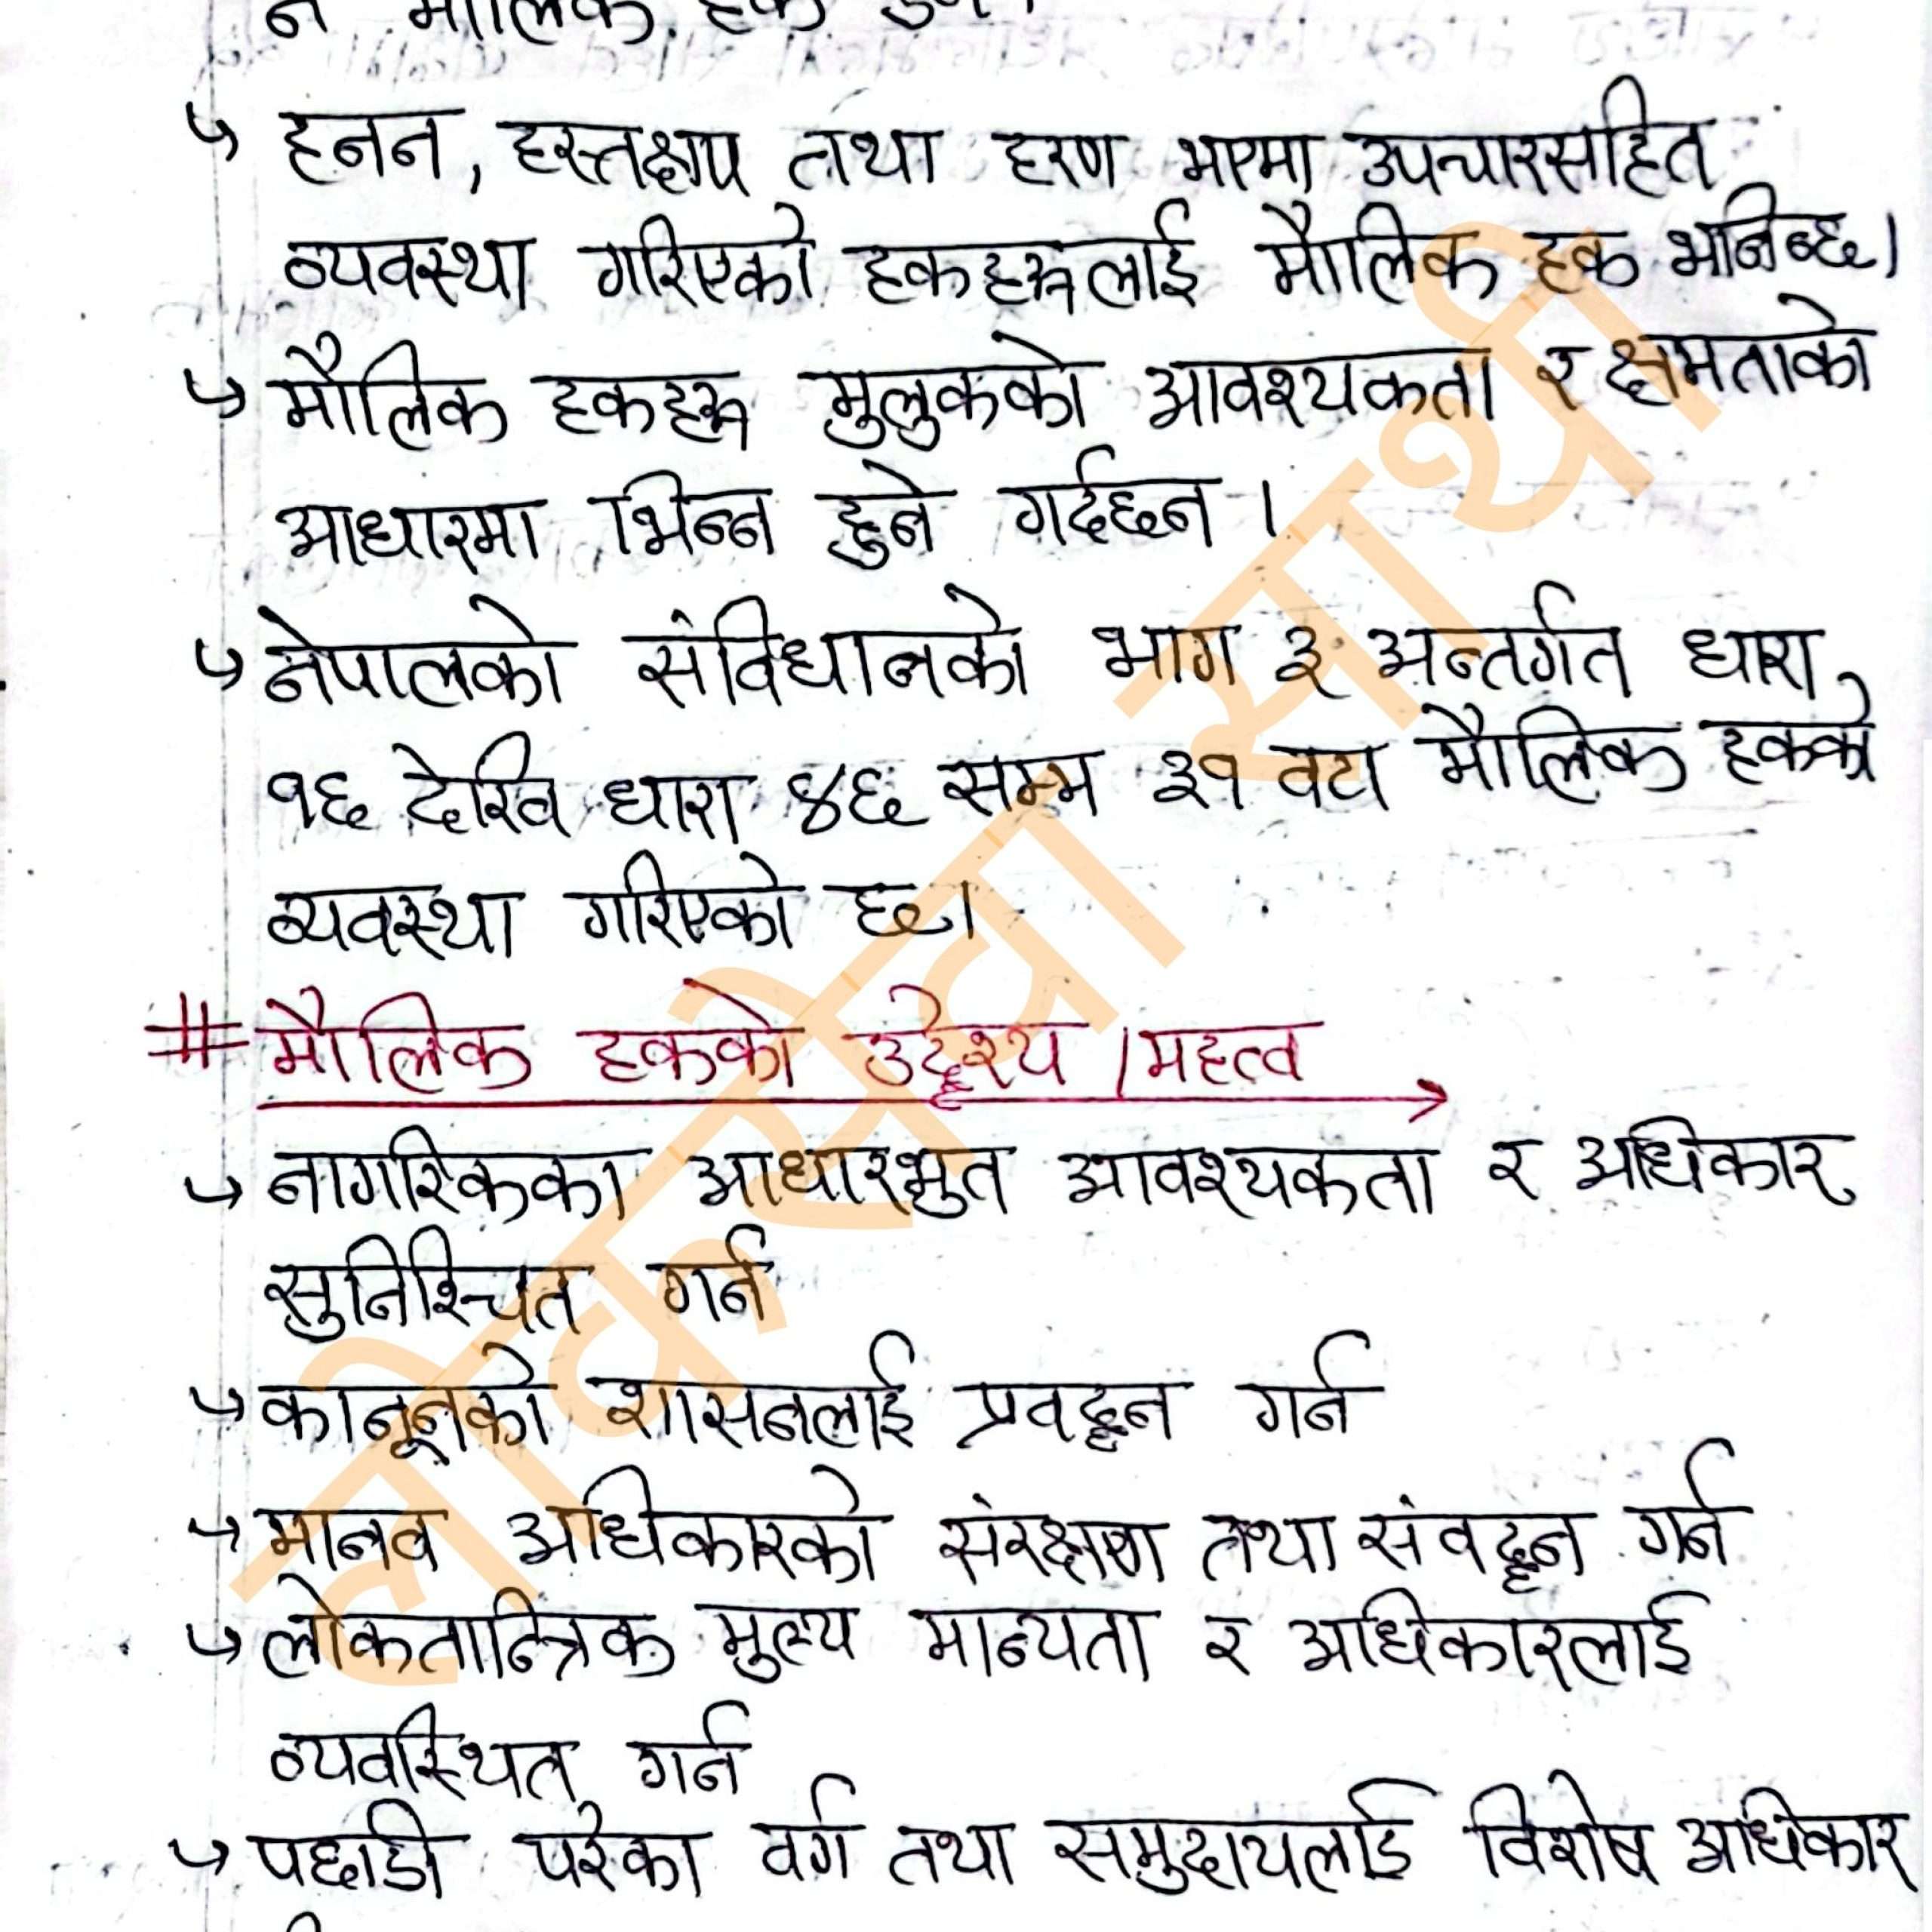 न मौलिक हक हुन्।
↳ हनन, हस्तक्षेप तथा हरण भएमा उपचारसहित
व्यवस्था गरिएको हकहरूलाई मौलिक हक भनिन्छ।
↳ मौलिक हकहरू मुलुकको आवश्यकता र क्षमताको
आधारमा भिन्न हुने गर्दछन ।
↳ नेपालको संविधानको भाग ३ अन्तर्गत धारा
१६ देखि धारा ४६ सम्म ३१ वटा मौलिक हकको
व्यवस्था गरिएको छ।
# मौलिक हकको उद्देश्य / महत्व
↳ नागरिकका आधारभुत आवश्यकता र अधिकार
सुनिश्चित गर्न
↳ कानूनको शासनलाई प्रवर्द्धन गर्न
↳ मानव अधिकारको संरक्षण तथा संवर्द्धन गर्न
↳ लोकतान्त्रिक मुल्य मान्यता र अधिकारलाई
व्यवस्थित गर्न
↳ पछाडी परेका वर्ग तथा समुदायलाई विशेष अधिकार
लोकसेवा साथी